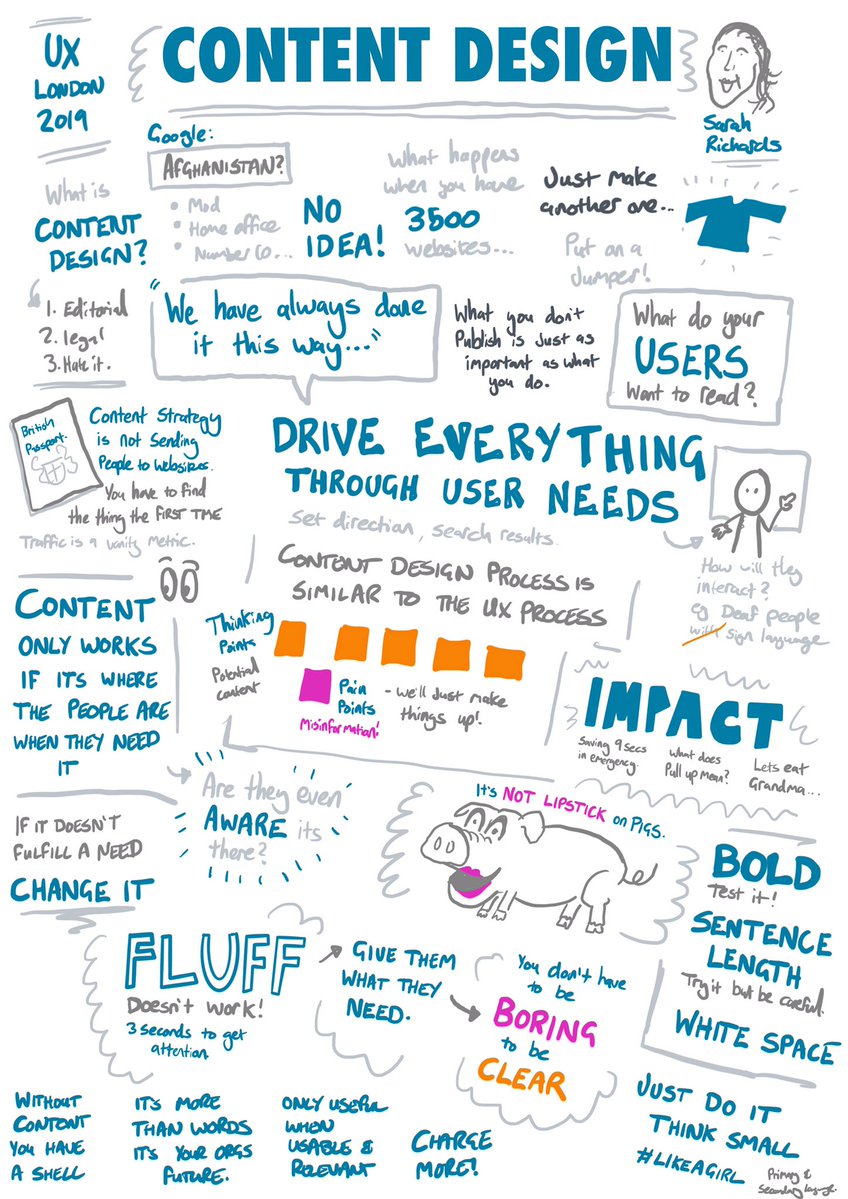 UX
LONDON
2019
CONTENT DESIGN
Sarah
Richards
What is
CONTENT
DESIGN?
1. Editorial
2. legal
3. Hate it.
Google:
AFGHANISTAN?
• Mod
• Home office
• Number 10...
NO
IDEA!
What happens
when you have
3500
websites...
Just make
another one...
Put on a
Jumper!
"We have always done
it this way..."
What you don't
Publish is just as
important as what
you do.
What do your
USERS
Want to read?
British
Passport.
Content Strategy
is not sending
People to websites.
You have to find
the thing the FIRST TIME
Traffic is a vanity metric.
DRIVE EVERYTHING
THROUGH USER NEEDS
Set direction, search results.
How will they
interact?
eg Deaf people
with sign language
CONTENT DESIGN PROCESS IS
SIMILAR TO THE UX PROCESS
Thinking
Points
Potential
content
Pain
Points
Misinformation!
- we'll Just make
things up!.
CONTENT
ONLY WORKS
IF ITS WHERE
THE PEOPLE ARE
WHEN THEY NEED
IT
IMPACT
Saving 9 secs
in emergency.
What does
Pull up mean?
Lets eat
Grandma...
Are they even
AWARE its
there?
IF IT DOESN'T
FULFILL A NEED
CHANGE IT
It's NOT LIPSTICK on PIGS.
BOLD
Test it!
SENTENCE
LENGTH
Try it but be careful.
WHITE SPACE
FLUFF
Doesn't work!
3 seconds to get
attention.
GIVE THEM
WHAT THEY
NEED.
You don't have
to be
BORING
to be
CLEAR
WITHOUT
CONTENT
YOU HAVE
A SHELL
IT'S MORE
THAN WORDS
IT'S YOUR ORGS
FUTURE.
ONLY USEFUL
WHEN
USABLE &
RELEVANT
CHARGE
MORE!
JUST DO IT
THINK SMALL
#LIKEAGIRL
Primary &
secondary language.